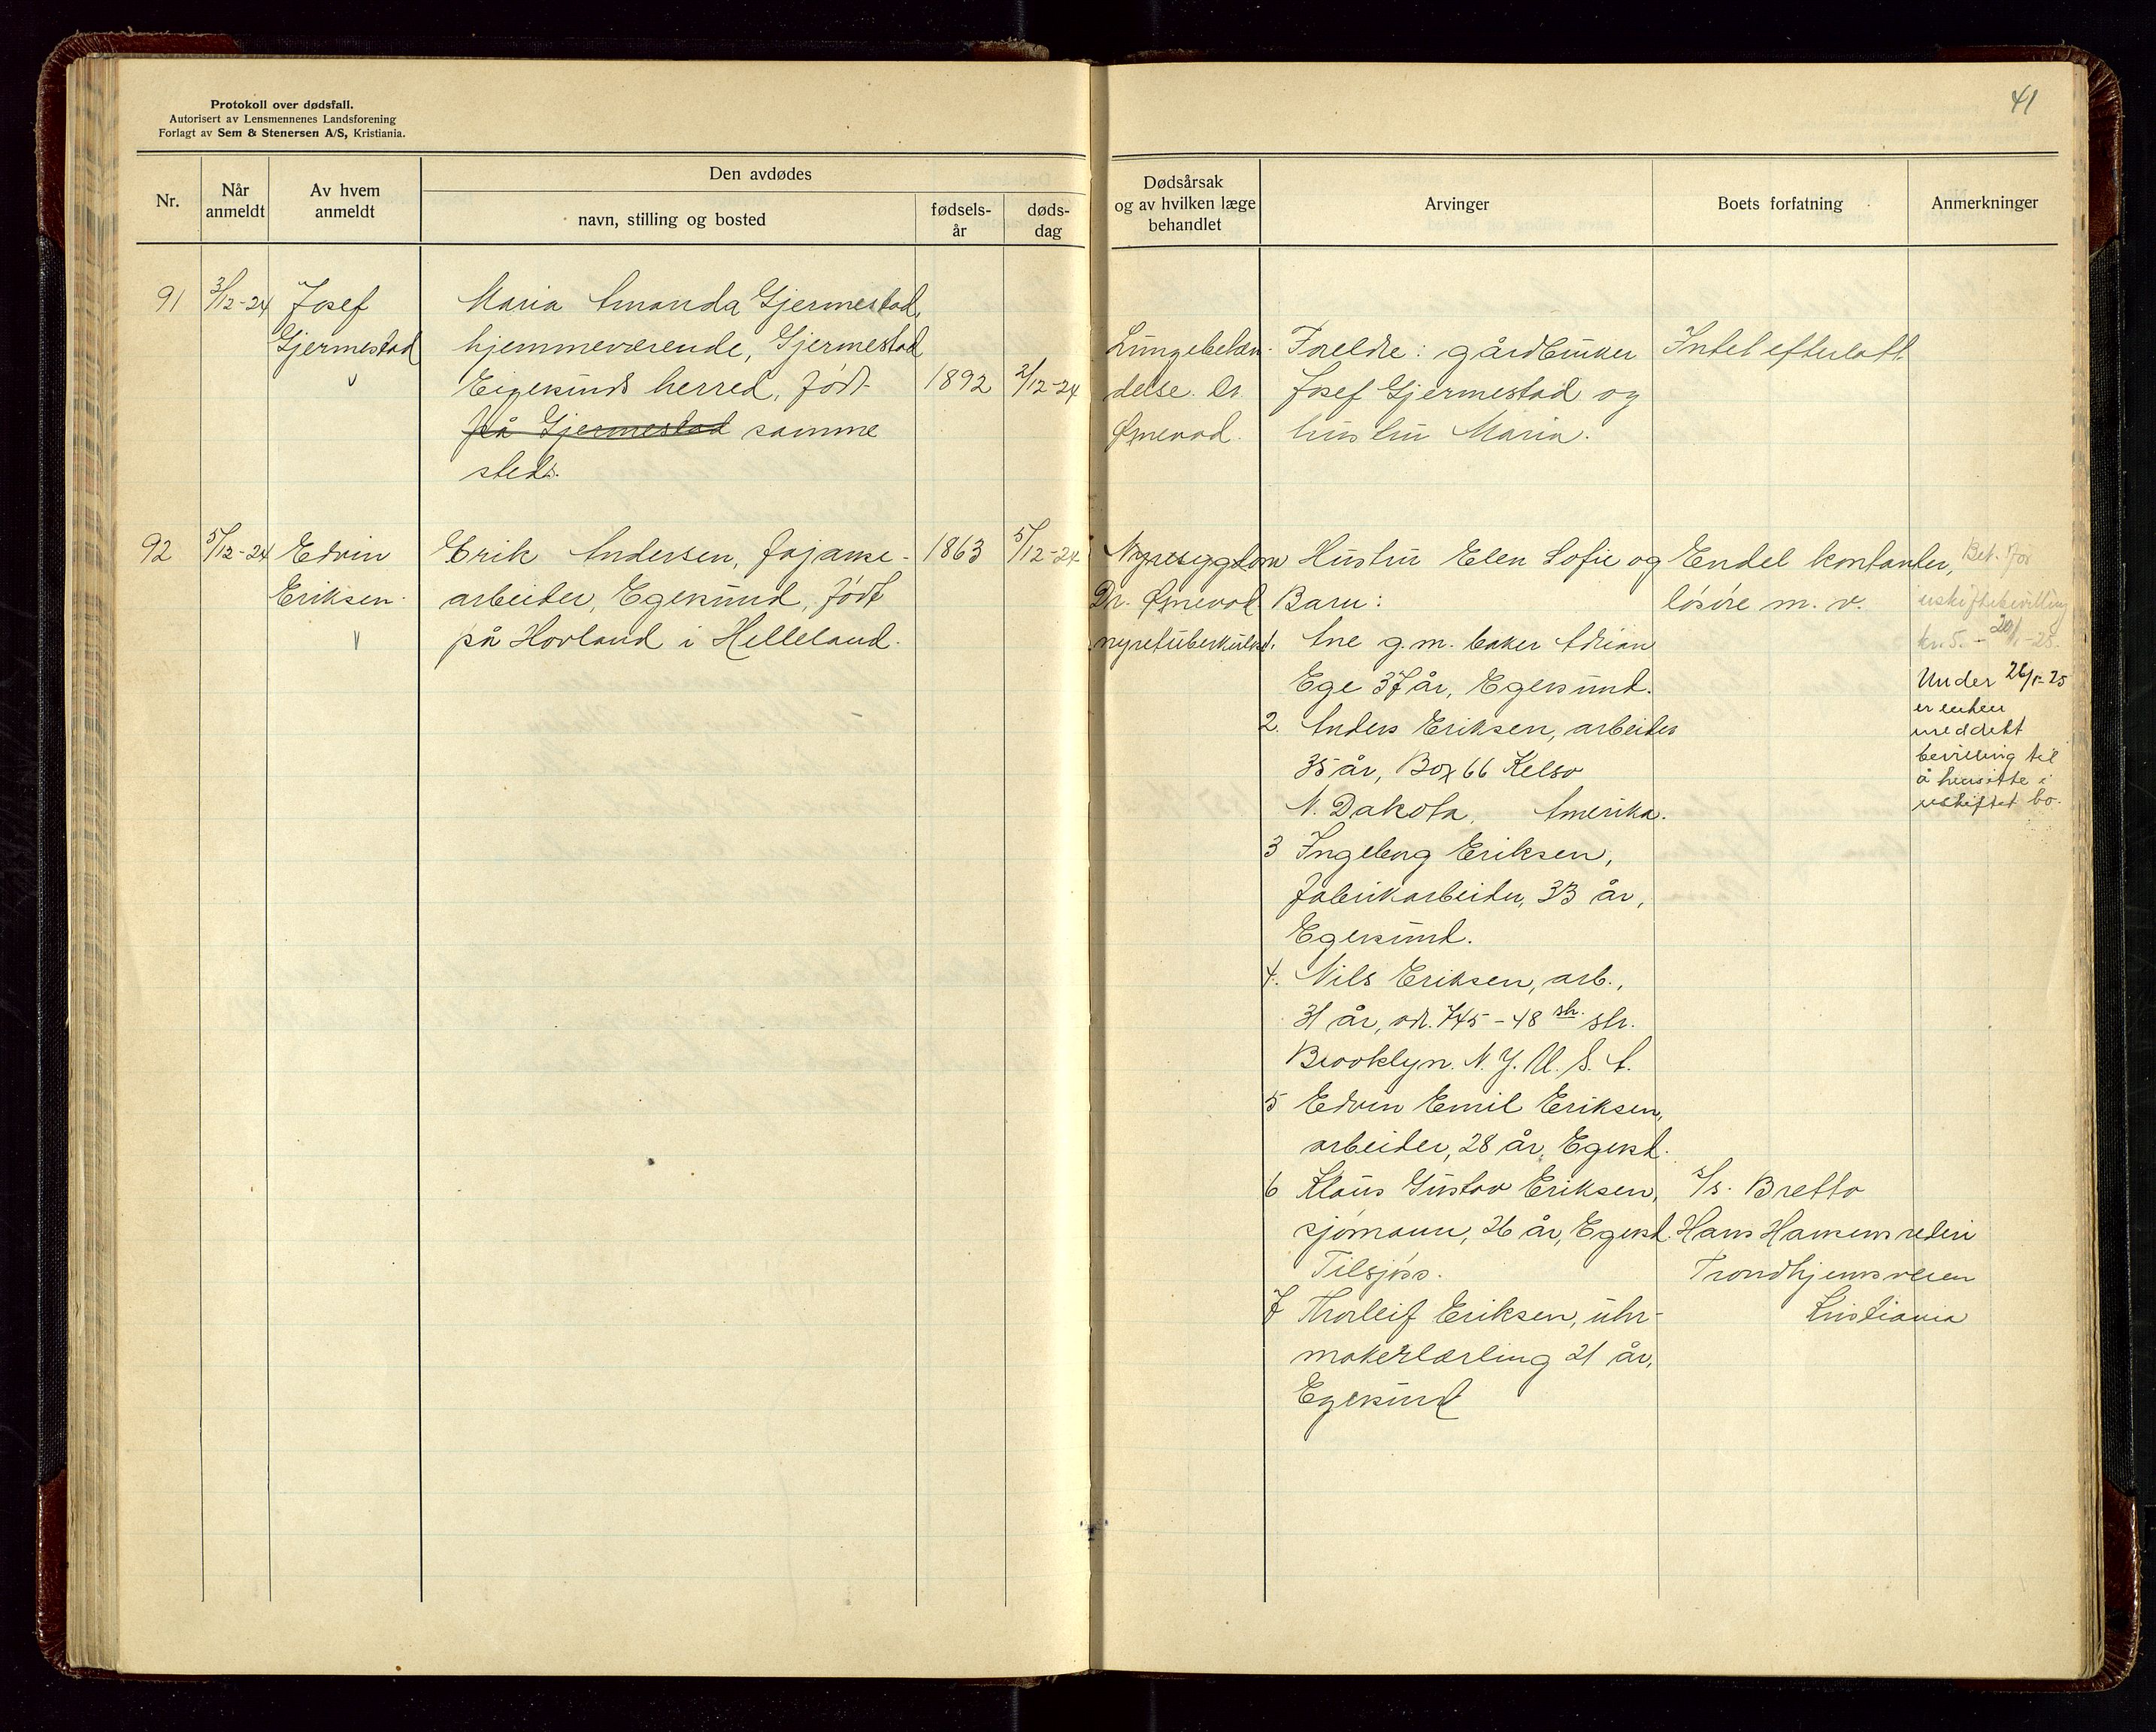 Protokoll over dødsfall.
Autorisert av Lensmennenes Landsforening
Forlagt av Sem & Stenersen A/S, Kristiania.
41
Nr.
Når anmeldt
Av hvem anmeldt
Den avdødes
navn, stilling og bosted
fødsels-år
døds-dag
Dødsårsak og av hvilken læge behandlet
Arvinger
Boets forfatning
Anmerkninger
91
3/12-24
Josef
Gjermestad
v
Maria Amanda Gjermestad,
hjemmeværende, Gjermestad
Eigersunds herred, født
på Gjermestad samme
steds.
1892
2/12-24
Lungebetæn-
delse. Dr.
Ømevad.
Foreldre: gårdbruker
Josef Gjermestad og
hustru Maria.
Intet efterlatt.
92
5/12-24
Edvin
Eriksen.
v
Erik Andersen, fajanse-
arbeider, Egersund, født
på Hovland i Helleland.
1863
5/12-24
Nyresygdom
Dr. Ømevad
nyretuberkulose
Hustru Elen Sofie og
Barn:
1. Ane g.m. baker Adrian
Ege 37 år, Egersund.
2. Anders Eriksen, arbeider
35 år, Box 66 Kelso
N. Dakota. Amerika.
3 Ingeborg Eriksen,
fabrikarbeider, 33 år,
Egersund.
4. Nils Eriksen, arb.,
31 år, adr. 745-48 str. str.
Brooklyn. N.Y. U.S.A.
5 Edvin Emil Eriksen,
arbeider, 28 år, Egersd.
6 Klaus Gustav Eriksen,
sjømann, 26 år, Egersd.
Tilsjøss.
7 Thorleif Eriksen, uhr-
makerlærling 21 år,
Egersund
Endel kontanter,
løsøre m.v.
s/s. Bretto
Hans Hansens rederi
Trondhjemsveien
Kristiania
Bet. for
uskiftebevilling
kr. 5.-
Under 26/1-25
er enken
meddelt
bevilling til
å hensitte i
uskiftet bo.